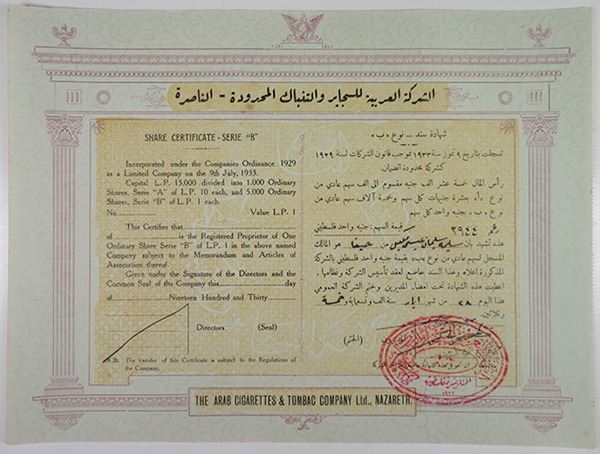 الشركة العربية للسجاير والتنباك المحدودة - الناصرة
SHARE CERTIFICATE - SERIE "B"
Incorporated under the Companies Ordinance 1929
as a Limited Company on the 9th July, 1933.
Capital L.P. 15,000 divided into 1,000 Ordinary
Shares, Serie "A" of L.P. 10 each, and 5,000 Ordinary
Shares, Serie "B" of L.P. 1 each.
No. Value L.P. 1
This Certifies that
of is the Registered Proprietor of One
Ordinary Share Serie "B" of L.P. 1 in the above named
Company subject to the Memorandum and Articles of
Association thereof.
Given under the Signature of the Directors and the
Common Seal of this Company this day
of Nineteen Hundred and Thirty
Directors (Seal)
N.B. The transfer of this Certificate is subject to the Regulations of
the Company.
شهادة سند - نوع «ب»
تسجلت بتاريخ ٩ تموز سنة ١٩٣٣ بموجب قانون الشركات لسنة ١٩٢٩
كشركة محدودة الضمان.
رأس المال خمسة عشر الف جنيه مقسوم الى الف سهم عادي من
نوع «أ» بعشرة جنيهات كل سهم وخمسة آلاف سهم عادي من
نوع «ب» بجنيه واحد كل سهم
رقم ٣٩٤٤ قيمة السهم: جنيه واحد فلسطيني
هذه تشهد بأن سليمان من حيفا هو المالك
المسجل لسهم عادي من نوع «ب» بقيمة جنيه واحد فلسطيني بالشركة
المذكورة اعلاه وهذا السند خاضع لعقد تأسيس الشركة ونظامها.
اعطيت هذه الشهادة تحت امضاء المديرين وختم الشركة العمومي
هذا اليوم ٢٨ من شهر ايار سنة الف وتسعماية وخمسة
وثلاثين.
(الختم)
THE ARAB CIGARETTES & TOMBAC COMPANY Ltd., NAZARETH.